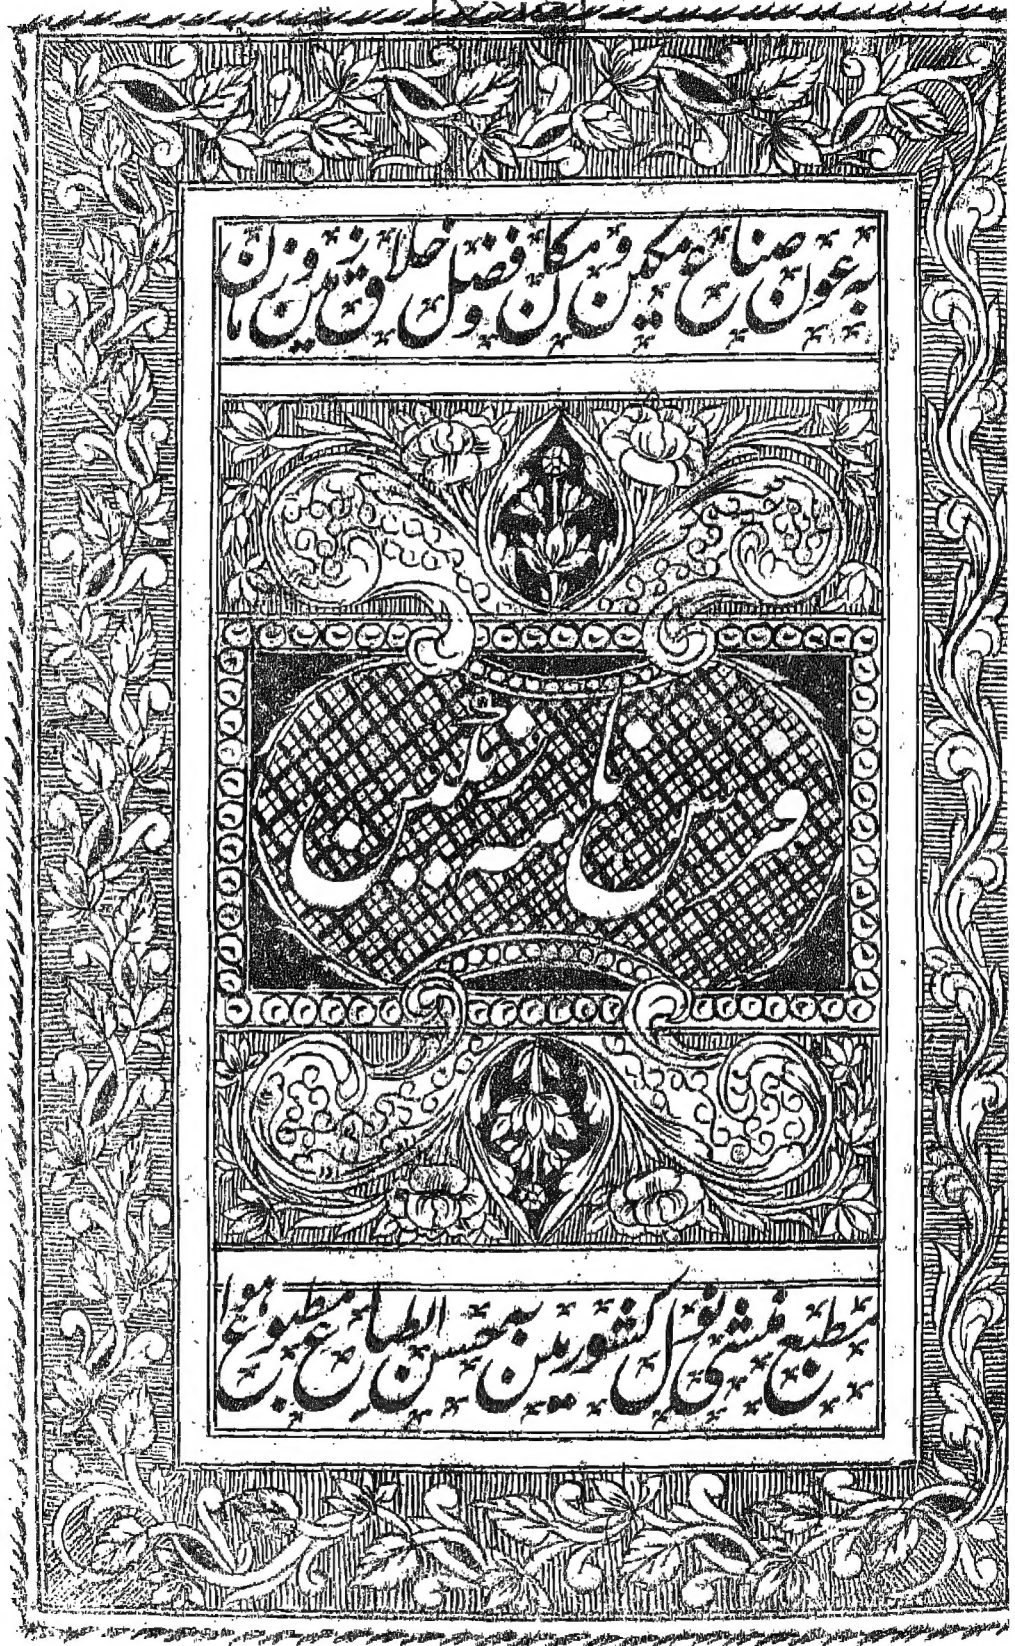 بہ عون صناع مکین و مکان و فضل خلاق زمین و زمان
فرس نامہ رنگین
مطبع منشی نول کشور مین بہ حسن الطباع مطبوع ہوا